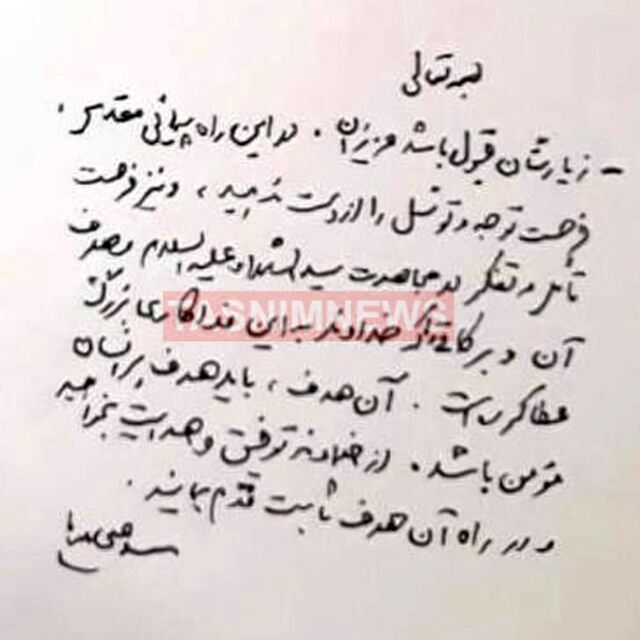 بسمه تعالی
- زیارتتان قبول باشد عزیزان . در این راه پیمائی مقدس ،
فرصت توجه و توسّل را از دست ندهید ، و نیز فرصت
تأمل و تفکر در مجاهدت سیدالشهداء علیه‌السلام و هدف
آن و برکاتی که خداوند به این فداکاری بزرگ
TASNIMNEWS
عطا کرده است . آن هدف ، باید هدف هر انسان
مؤمن باشد . از خداوند توفیق و هدایت بخواهید
و در راه آن هدف ثابت قدم بمانید .